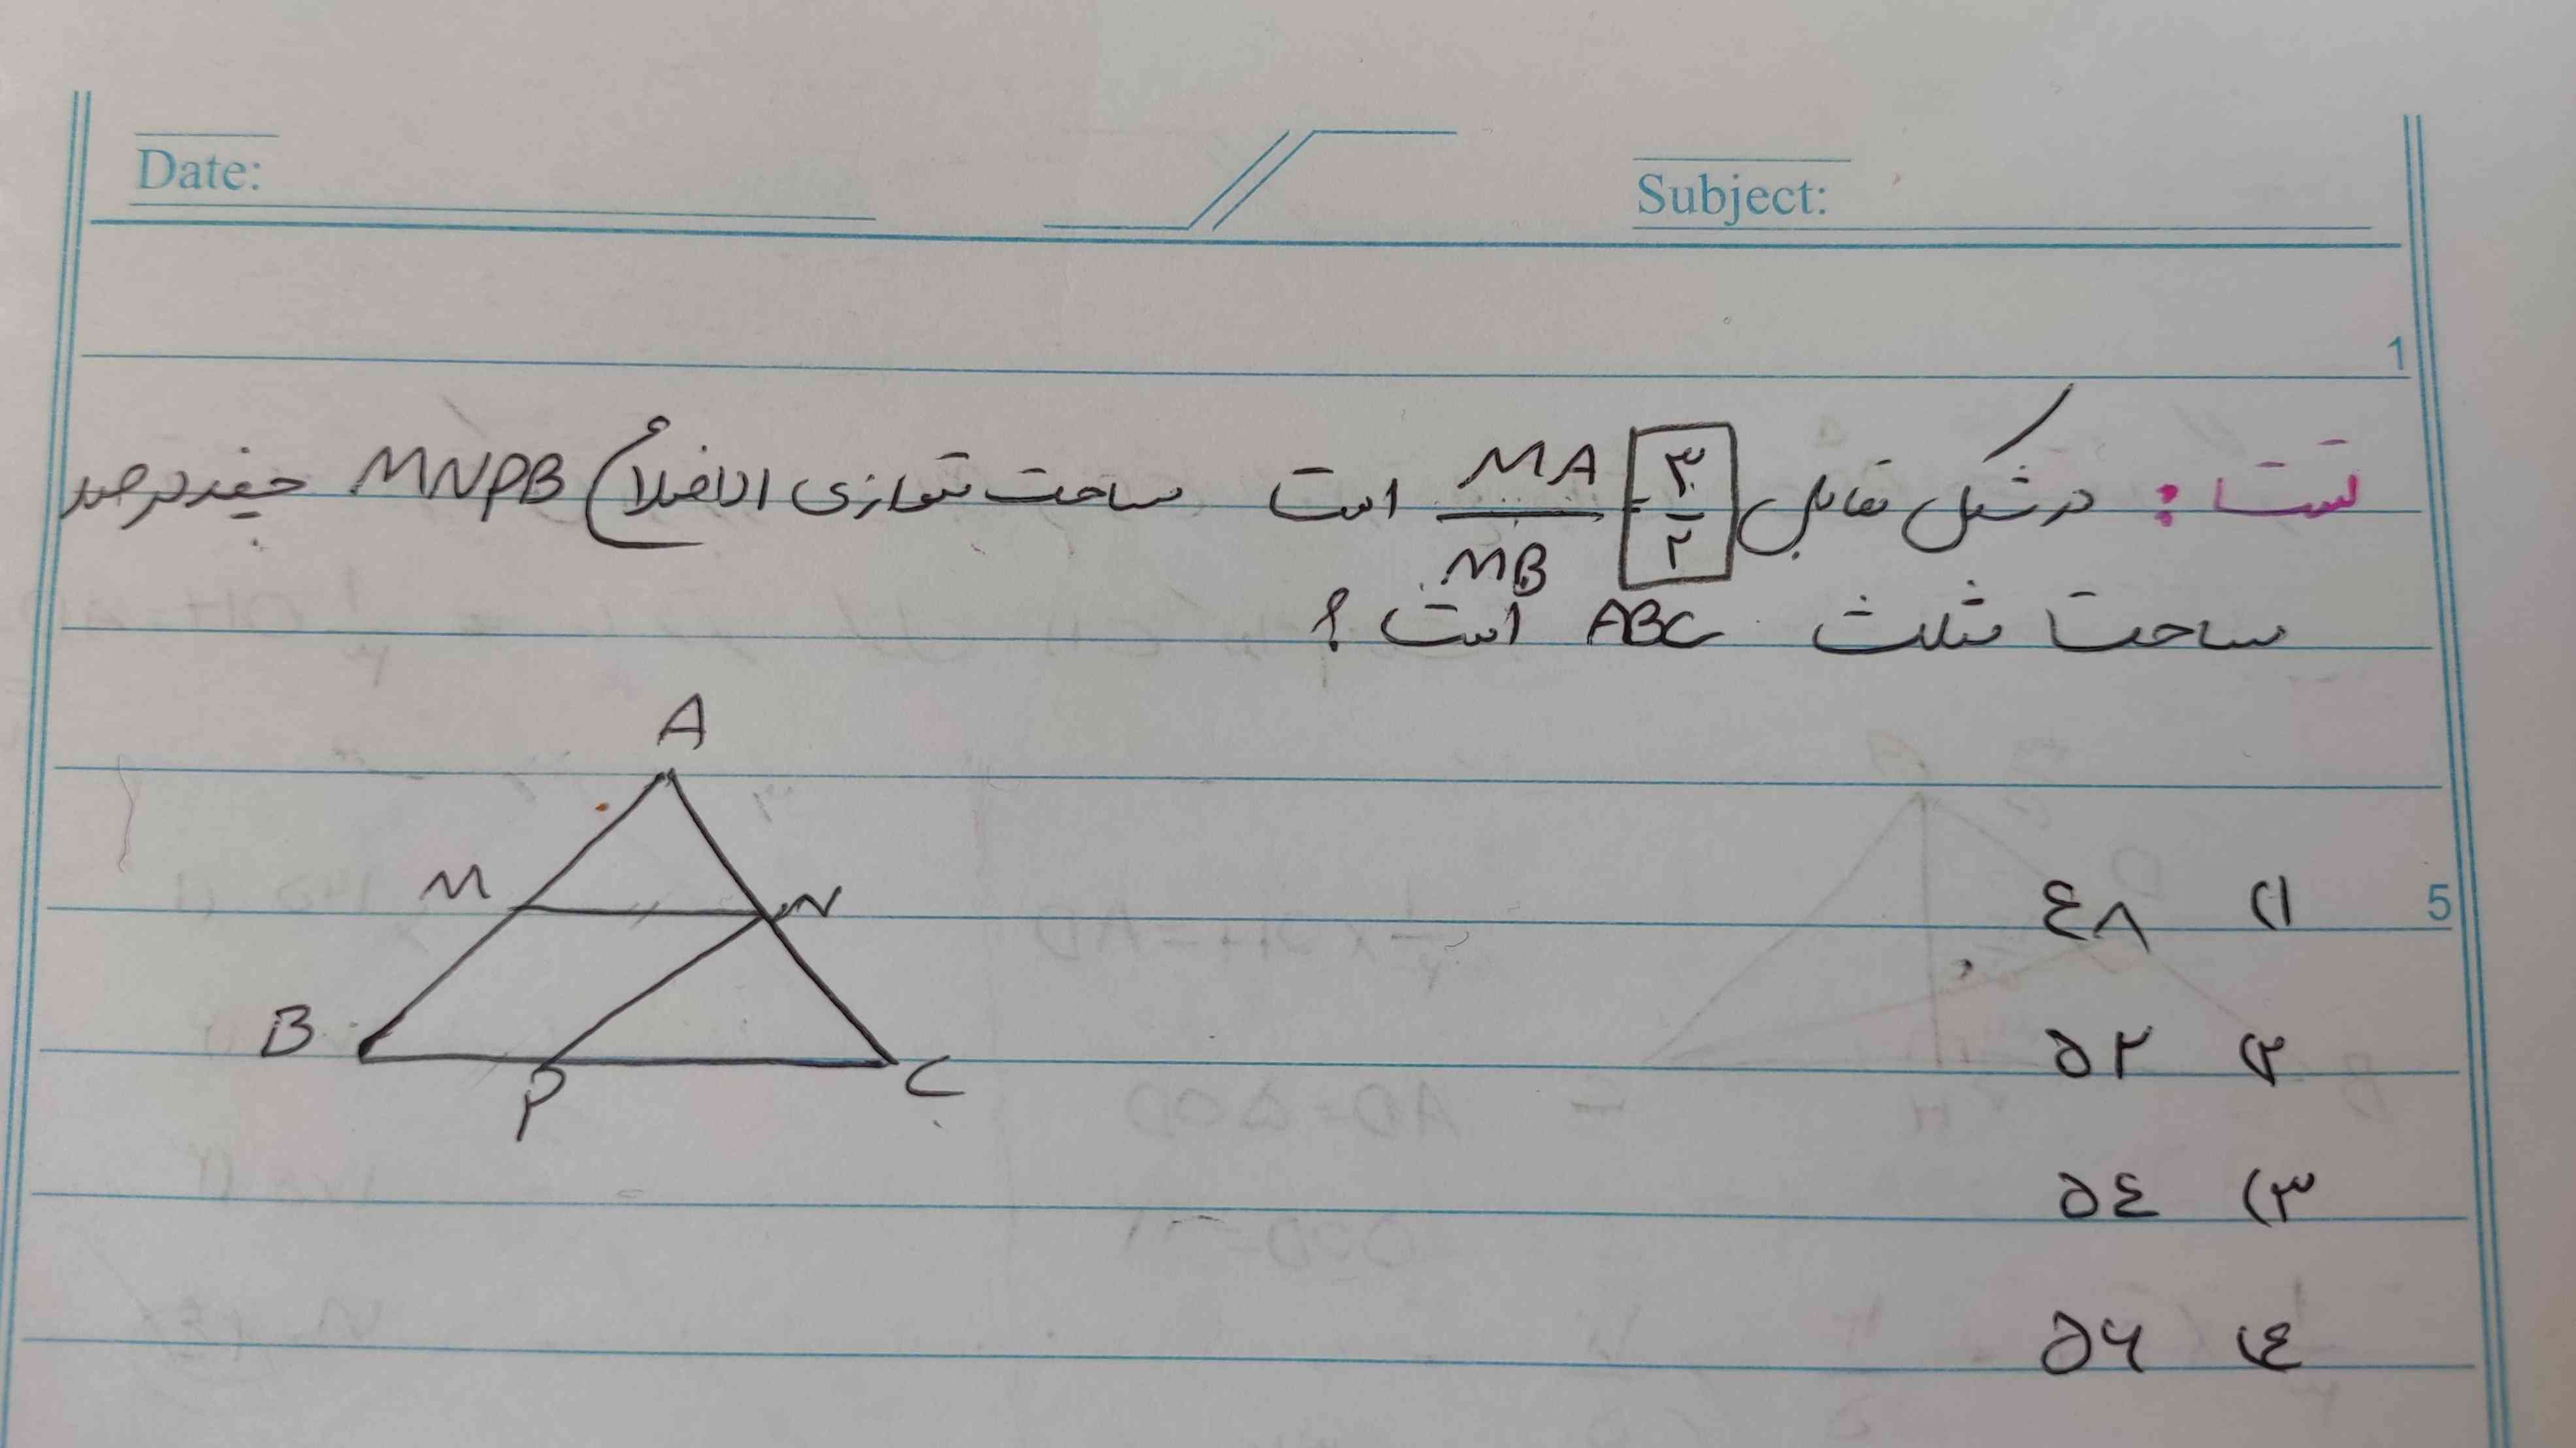 Date:
Subject:
1
تست : در شکل مقابل MA/MB = ۳/۲ است مساحت متوازی الاضلاع MNPB چند درصد
مساحت مثلث ABC است ؟
A
M N
B P C
5
۱) ٤٨
۲) ۵۲
۳) ۵٤
٤) ۵۶